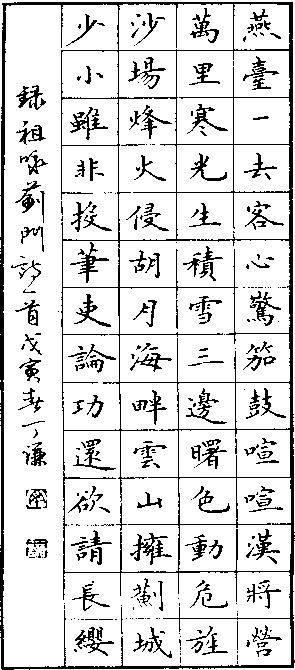 燕臺一去客心驚笳鼓喧喧漢將營
萬里寒光生積雪三邊曙色動危旌
沙場烽火侵胡月海畔雲山擁薊城
少小雖非投筆吏論功還欲請長纓
錄祖咏薊門詩一首戊寅春丁謙